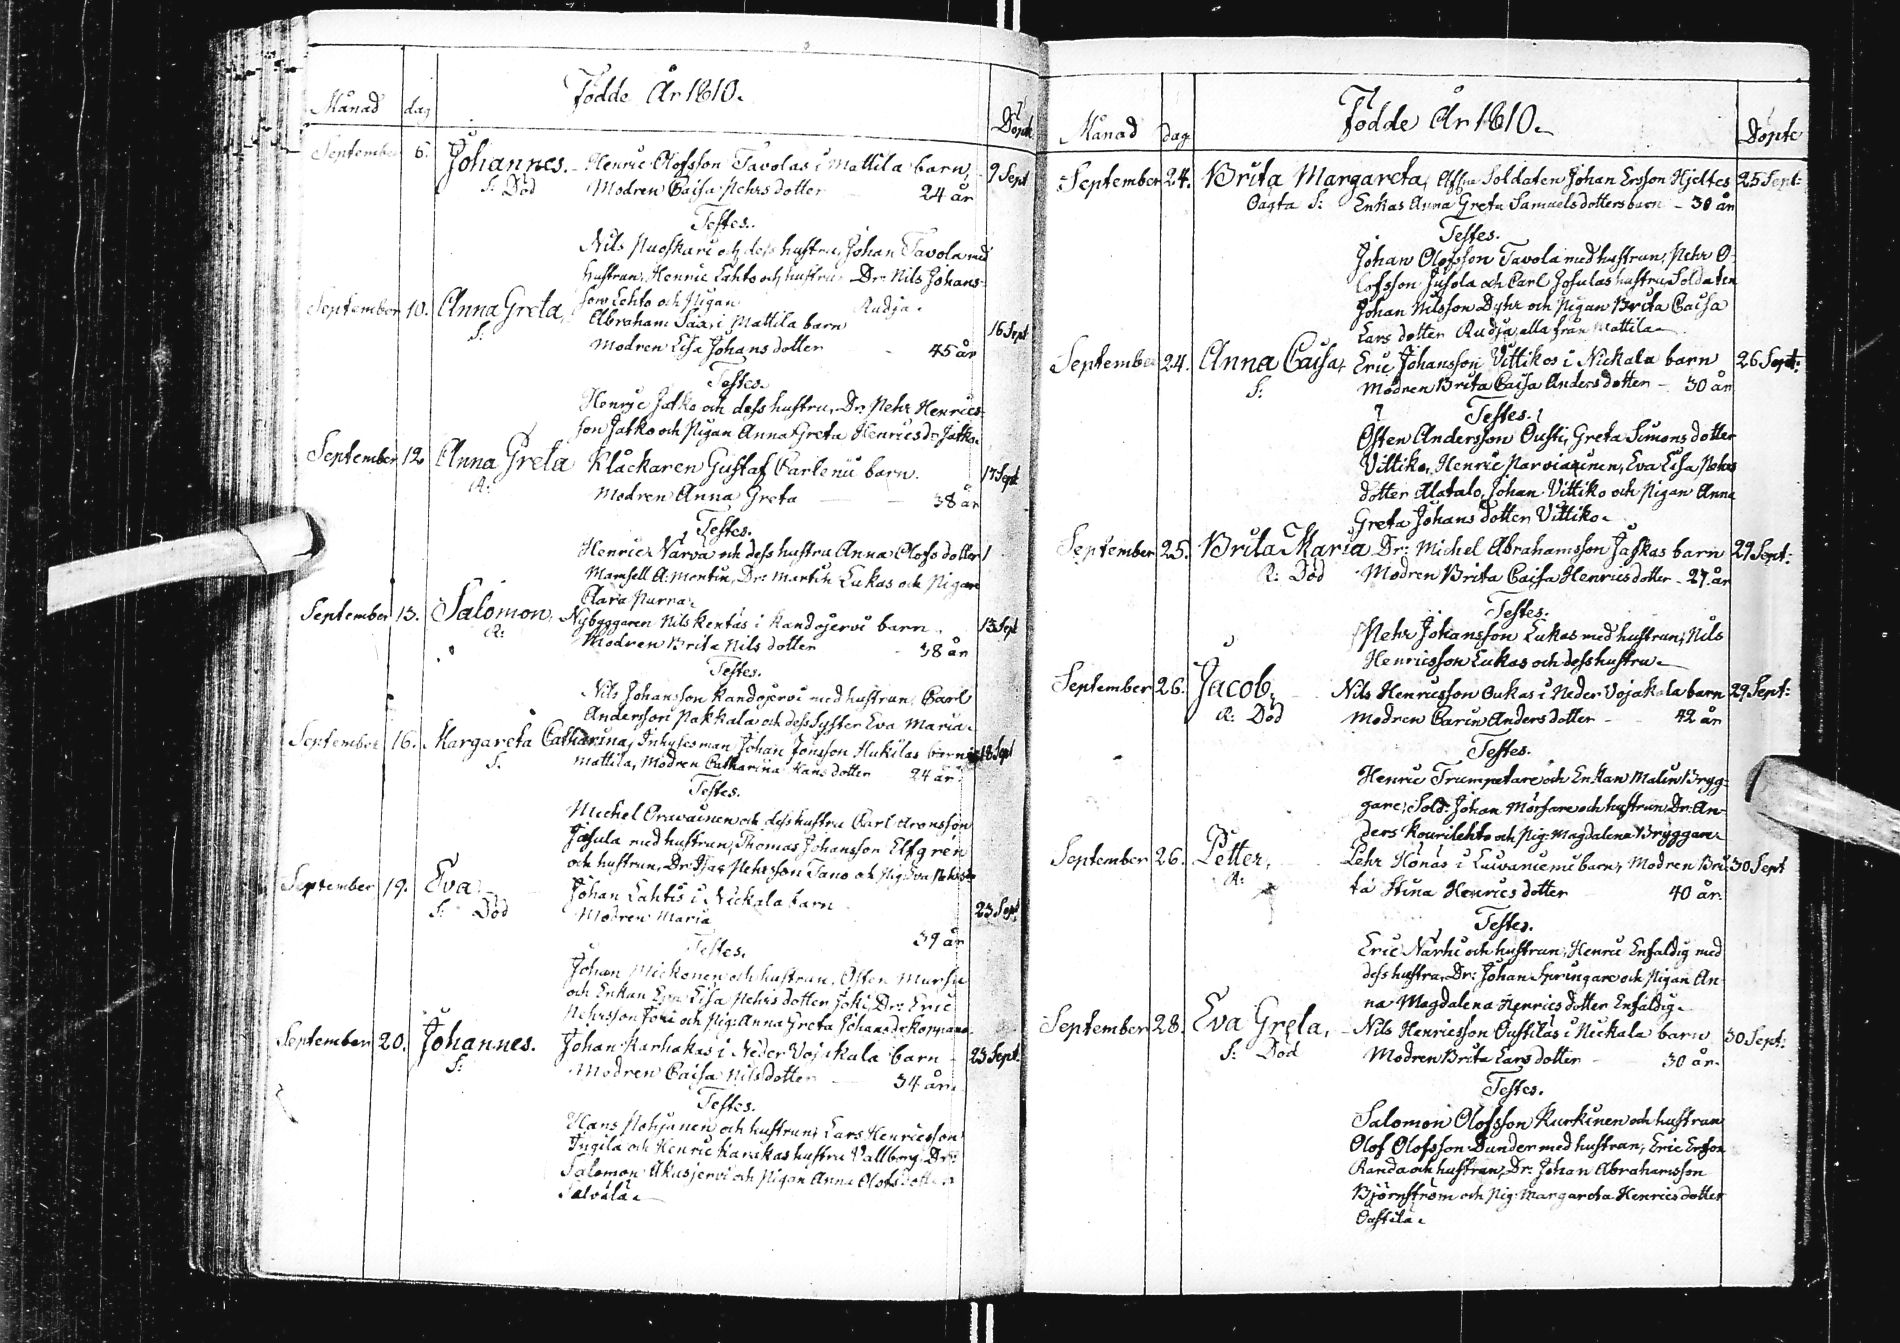 Födde År 1810.
Månad dag Döpte
September 6. Johannes. Henric Olofsson Tavolas i Mattila barn, 9 Sept
S: Död Modren Caisa Pehrs dotter 24 år
Testes.
Nils Puoskari och dess hustru, Johan Tavola med
hustrun, Henric Lahto och hustru Dr: Nils Johans-
son Lehto och Pigan Rudja.
September 10. Anna Greta,
S: Abraham Saxi i Mattila barn 16 Sept
Modren Lisa Johans dotter 45 år
Testes.
Henric Jatko och dess hustru, Dr: Pehr Henrics-
son Jatko och Pigan Anna Greta Henricsdr Jatko.
September 12 Anna Greta Klåckaren Gustaf Carlenii barn. 17 Sept
R: Modren Anna Greta 38 år
Testes.
Henric Varva och dess hustru Anna Olofs dotter
Mamsell A: Montin, Dr: Martin Lukas och Pigan
Clara Purra.
September 13. Salomon, Nybyggaren Nils Kentäs i Kandojervi barn 13 Sept
R: Modren Brita Nils dotter 38 år
Testes.
Nils Johansson Kandojervi med hustrun, Carl
Andersson Pakkala och dess Syster Eva Maria.
September 16. Margareta Catharina, Inhysesman Johan Jönsson Hukilas barn i 18 Sept
S: Mattila, Modren Catharina Hans dotter 24 år.
Testes.
Michel Oravainen och dess hustru Carl Aronsson
Josula med hustrun, Thomas Johansson Elfgren
och hustrun, Dr: Isac Pehrsson Tano och Pig: Eva
September 19. Eva Johan Lahtis i Nickala barn
S: Död Modren Maria 23 Sept
39 år
Testes.
Johan Mickonen och hustrun, Östen Mursu
och Enkan Eva Lisa Pehrs dotter Joki, Dr: Eric
Pehrsson Joki och Pig: Anna Greta Johansdr Koppana
September 20. Johannes. Johan Karhakas i Neder Vojakala barn 23 Sept.
S: Modren Caisa Nils dotter 34 år.
Testes.
Hans Pohjanen och hustrun, Lars Henricsson
och Henric Karakas hustru Vallberg Dr:
Salomon Akusjervi och Pigan Anna Olofs dotter
Födde År 1810.
Månad dag Döpte
September 24. Brita Margareta, Soldaten Johan Ersson Hjeltes 25 Sept:
Oägta S: Enkas Anna Greta Samuels dotters barn 30 år
Testes.
Johan Olofsson Tavola med hustrun, Pehr O-
lofsson Jusola och Carl Josulas hustru Soldaten
Johan Nilsson Dyhr och Pigan Brita Caisa
Lars dotter Rudja, alla från Mattila.
September 24. Anna Caisa, Eric Johansson Vittikos i Nickala barn 26 Sept:
S: Modren Brita Caisa Anders dotter 30 år
Testes.
Östen Andersson Ousti, Greta Simons dotter
Vittiko, Henric Parviainen, Eva Lisa Pehrs
dotter Alatalo, Johan Vittiko och Pigan Anna
Greta Johans dotter Vittiko.
September 25. Brita Maria Dr: Michel Abrahamsson Jaskas barn 29 Sept:
R: Död Modren Brita Caisa Henrics dotter 27 år
Testes.
Pehr Johansson Lukas med hustrun, Nils
Henricsson Lukas och dess hustru.
September 26. Jacob, Nils Henricsson Oukas i Neder Vojakala barn 29 Sept:
R: Död Modren Carin Anders dotter 42 år
Testes.
Henric Trumpetare och Enkan Malin Brygg-
gare, Sold: Johan Mörsare och hustrun, Dr: An-
ders Kourilehto och Pig: Magdalena Bryggare.
September 26. Petter, Pehr Hönäs i Laivaniemi barn, Modren Bri 30 Sept
R: ta Stina Henrics dotter 40 år.
Testes.
Eric Närhi och hustrun, Henric Enfaldig med
dess hustru, Dr: Johan Springare och Pigan An-
na Magdalena Henrics dotter Enfaldig.
September 28. Eva Greta, Nils Henricsson Oustilas i Nickala barn 30 Sept:
S: Död Modren Brita Lars dotter 30 år.
Testes.
Salomon Olofsson Kurkinen och hustrun
Olof Olofsson Dunder med hustrun, Eric Ersson
Randa och hustrun, Dr: Johan Abrahamsson
Björnström och Pig: Margareta Henrics dotter
Oustila.